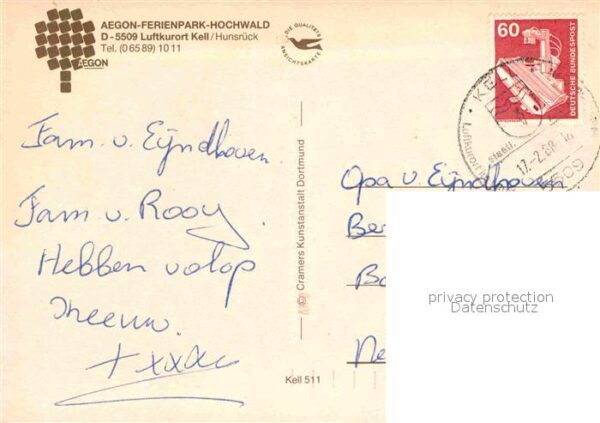 AEGON-FERIENPARK-HOCHWALD
D-5509 Luftkurort Kell/Hunsrück
Tel. (0 65 89) 10 11
AEGON
DIE QUALITÄTS
ANSICHTSKARTE
60
DEUTSCHE BUNDESPOST
Luftkurort
17.-2.88
5509
Fam. v. Eijndhoven
Fam v. Rooy
Hebben volop
sneeuw.
+xxx
© Cramers Kunstanstalt Dortmund
Kell 511
Opa v. Eijndhoven
Be
Ne
privacy protection
Datenschutz